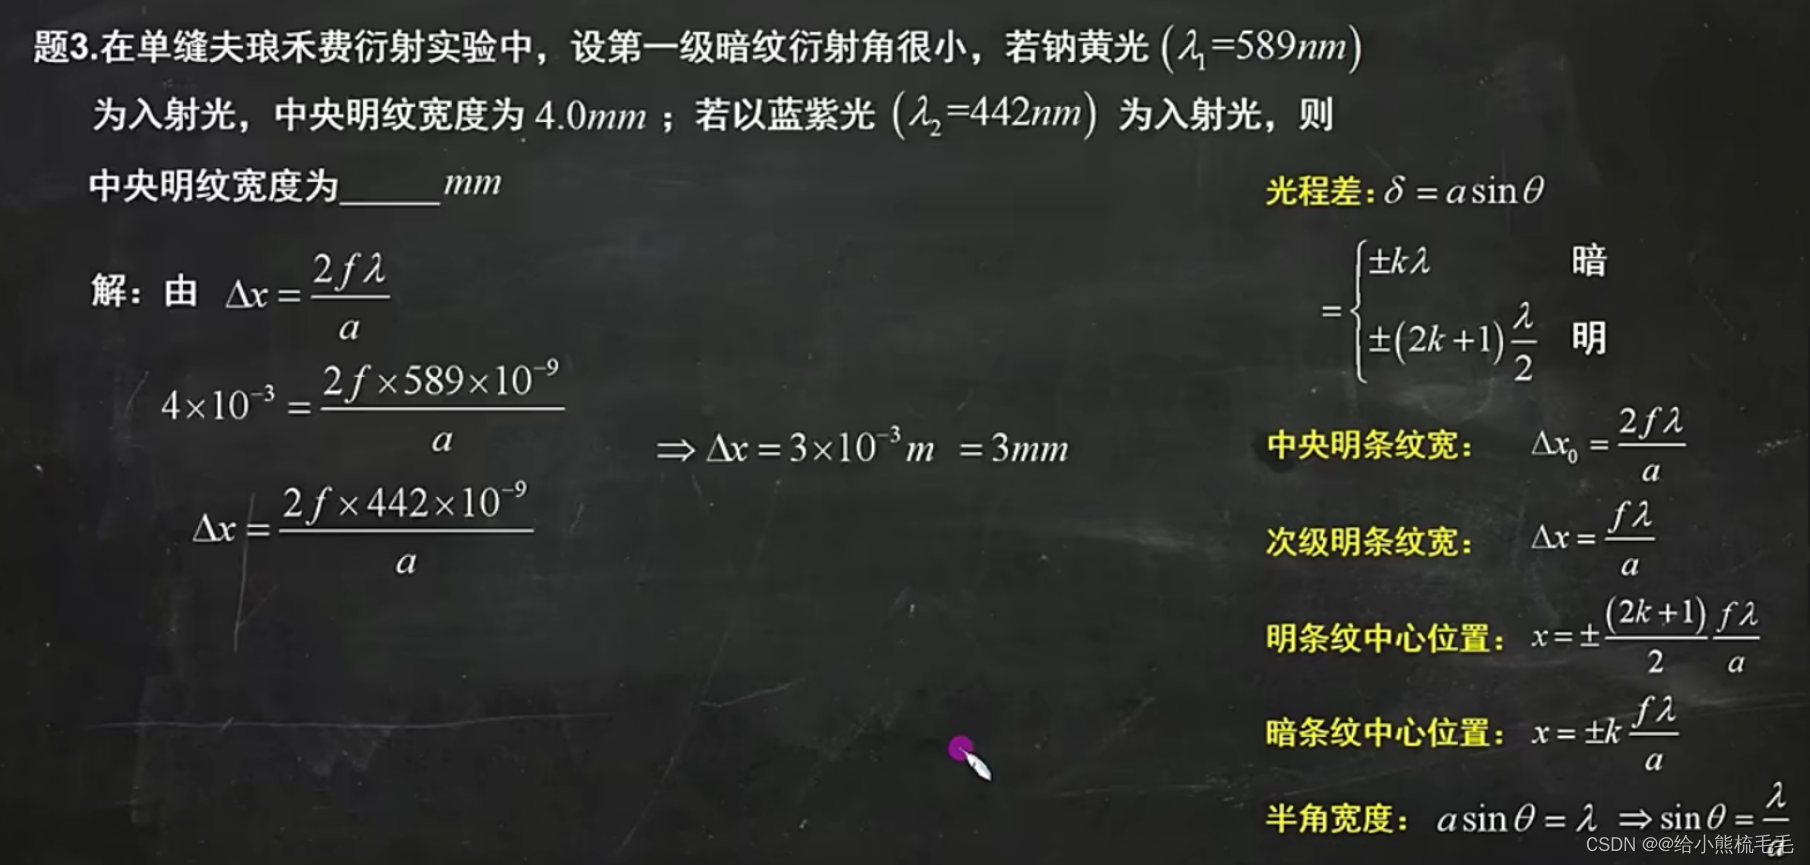 题3.在单缝夫琅禾费衍射实验中，设第一级暗纹衍射角很小，若钠黄光 (λ₁=589nm)
为入射光，中央明纹宽度为 4.0mm ；若以蓝紫光 (λ₂=442nm) 为入射光，则
中央明纹宽度为_____mm
解：由 Δx = 2fλ/a
4×10⁻³ = 2f×589×10⁻⁹/a
Δx = 2f×442×10⁻⁹/a
⇒ Δx = 3×10⁻³m = 3mm
光程差: δ = a sinθ
= { ±kλ 暗
±(2k+1)λ/2 明
中央明条纹宽： Δx₀ = 2fλ/a
次级明条纹宽： Δx = fλ/a
明条纹中心位置： x = ±(2k+1)/2 fλ/a
暗条纹中心位置： x = ±k fλ/a
半角宽度： a sinθ = λ ⇒ sinθ = λ/a
CSDN @@给小熊梳毛毛